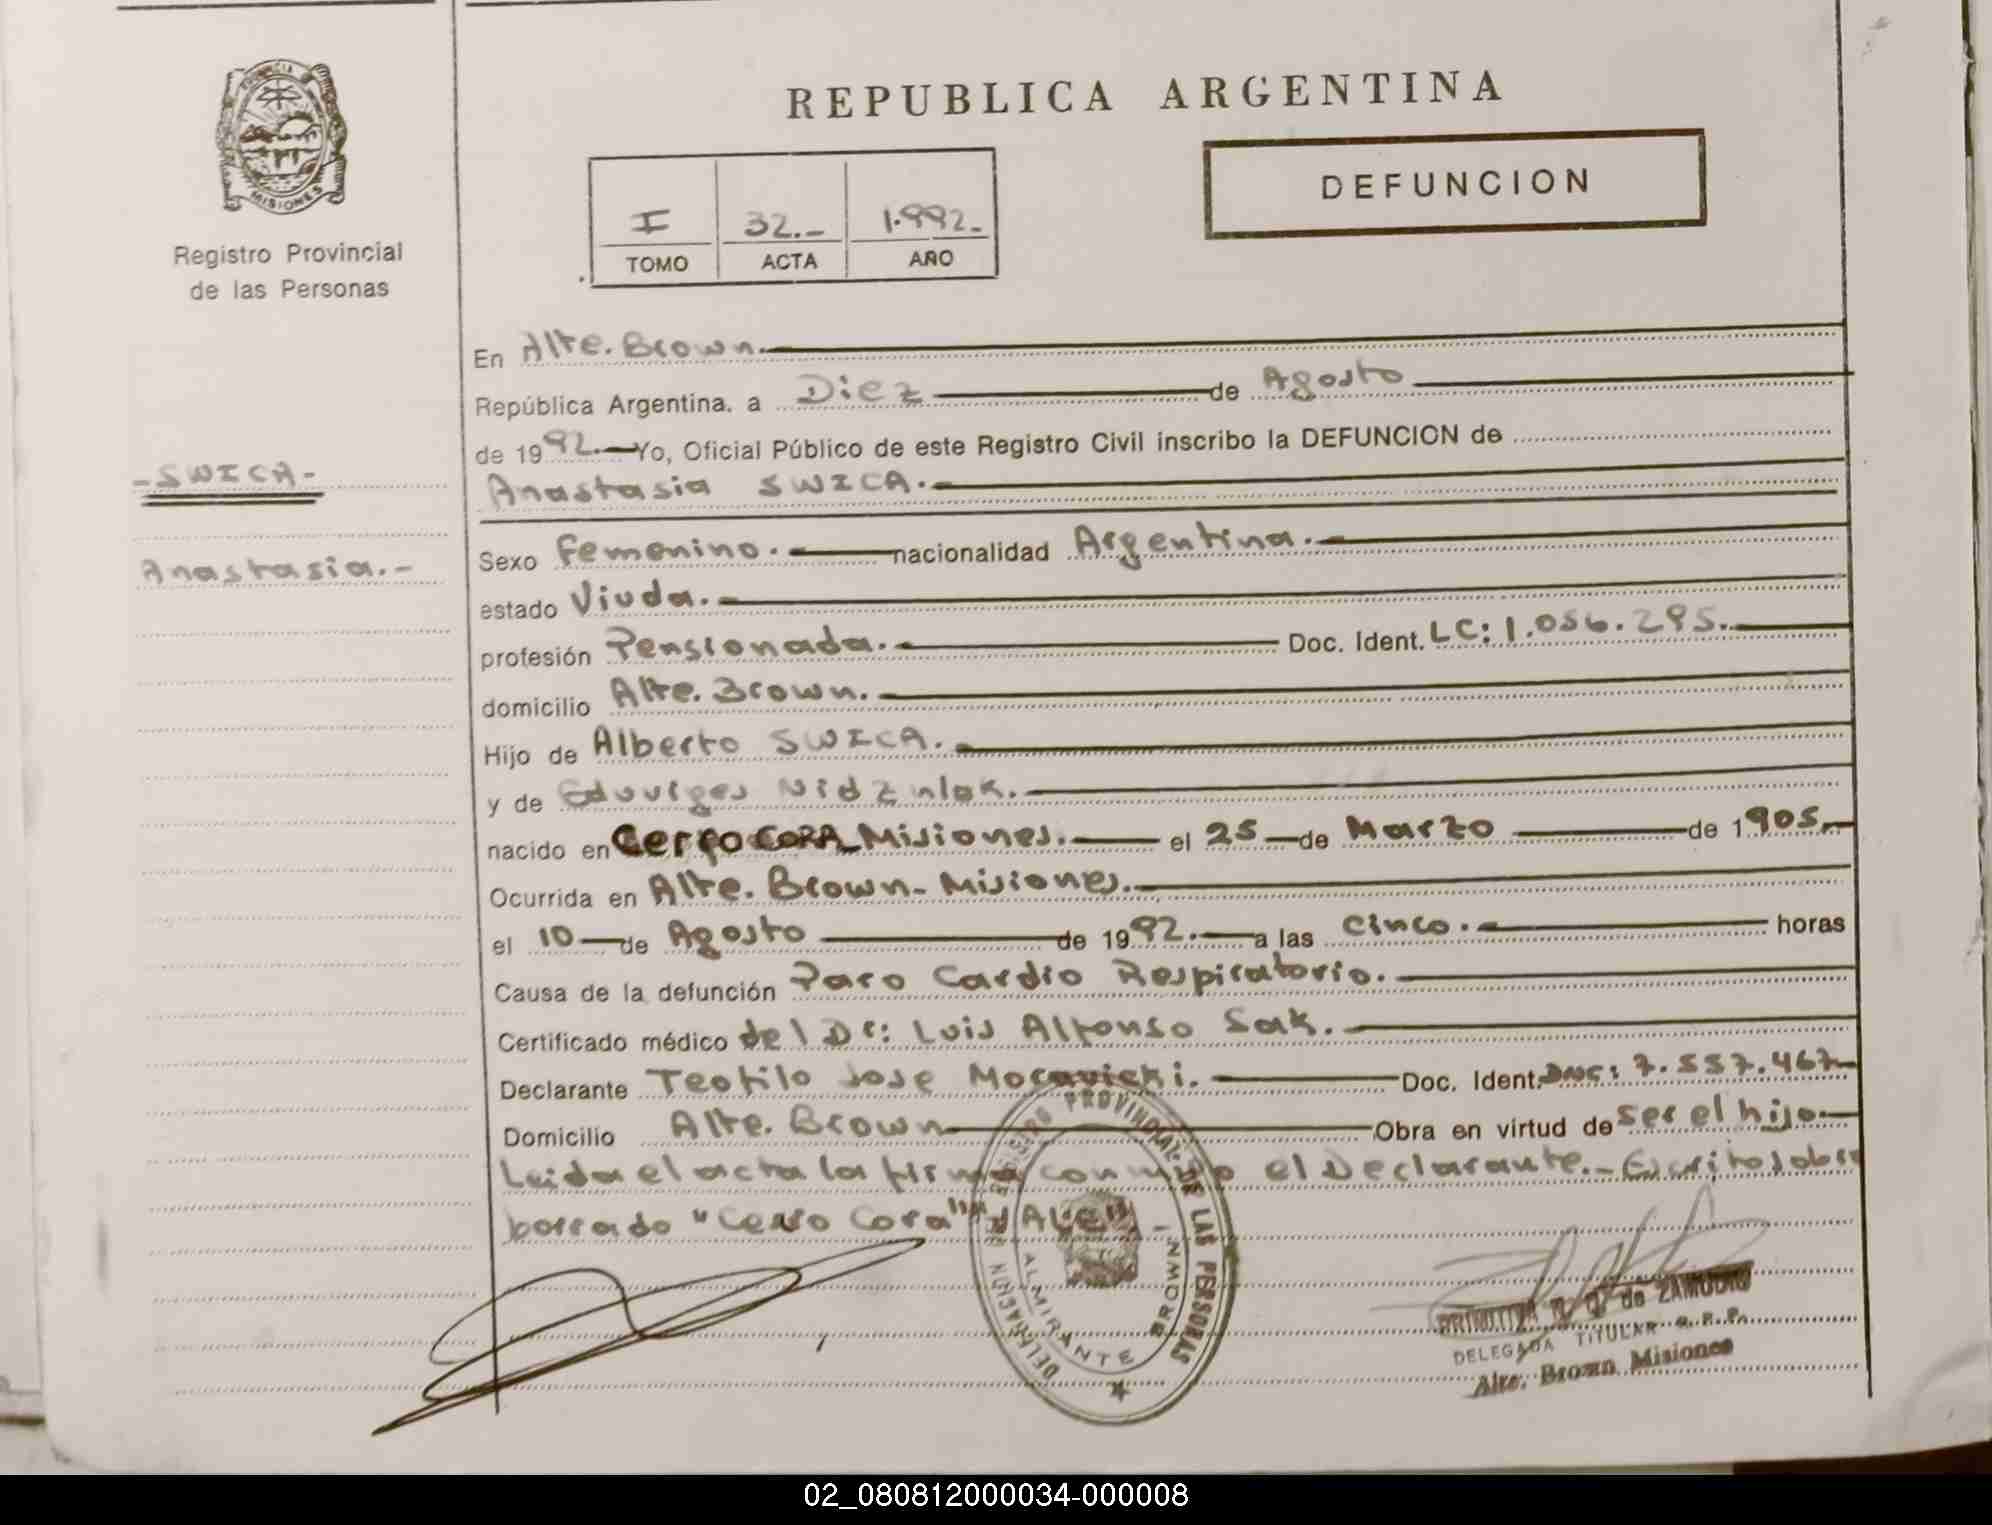 REPUBLICA ARGENTINA
PROVINCIA
MISIONES
Registro Provincial
de las Personas
DEFUNCION
I 32.- 1.992.-
TOMO ACTA AÑO
-SWICA-
Anastasia.-
En Alte. Brown.
República Argentina. a Diez de Agosto
de 1992.- Yo, Oficial Público de este Registro Civil inscribo la DEFUNCION de
Anastasia SWICA.-
Sexo Femenino.- nacionalidad Argentina.-
estado Viuda.-
profesión Pensionada.- Doc. Ident. LC: 1.056.295.-
domicilio Alte. Brown.-
Hijo de Alberto SWICA.-
y de Eduviges
nacido en Cerro CORA_Misiones.- el 25 - de Marzo de 1905.-
Ocurrida en Alte. Brown- Misiones.-
el 10 - de Agosto de 1992.- a las Cinco.- horas
Causa de la defunción Paro Cardio Respiratorio.-
Certificado médico del Dr: Luis Alfonso Sak.-
Declarante Teofilo Jose Moravicki.- Doc. Ident. DNI: 7.557.467-
Domicilio Alte. Brown- Obra en virtud de ser el hijo.-
Leida el acta la firma conmigo el Declarante.- Escrito sobre
borrado "Cerro Cora" "VALE".
REGISTRO PROVINCIAL DE LAS PERSONAS
DELEGACION
ALMIRANTE BROWN
de ZAMUDIO
DELEGADA TITULAR R. P. P.
Alte. Brown Misiones
02_080812000034-000008